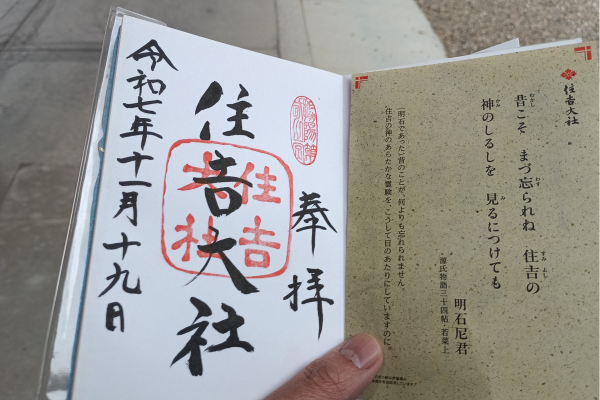 住吉大社
昔こそ まづ忘られね 住吉の
神のしるしを 見るにつけても
明石尼君
源氏物語三十四帖・若菜上
(明石であった)昔のことが、何よりも忘れられません。
住吉の神のあらたかな霊験を、こうして目のあたりにしていますのに。
奉拝
住吉大社
住吉大社
令和七年十一月十九日